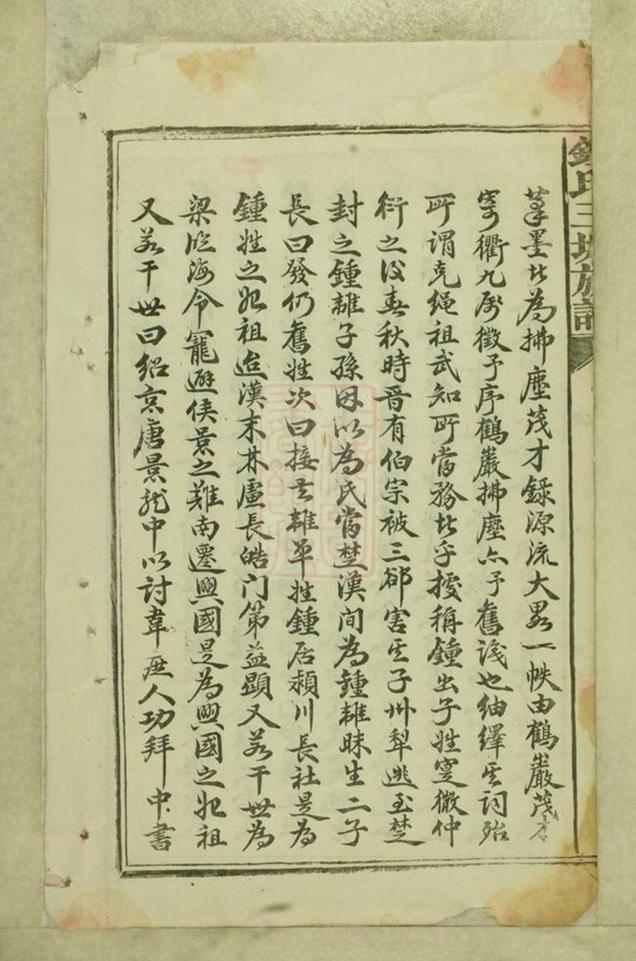 鍾氏三塘族譜
葦墨比為拂塵茂才錄源流大畧一帙由鶴巖茂才
寄衢九郵徵予序鶴巖拂塵亦予舊識也紬繹其詞殆
所謂克繩祖武知所當務比乎據稱鍾出子姓寔微仲
衍之後春秋時晉有伯宗被三郤害其子州犁逃至楚
封之鍾離子孫因以為氏當楚漢間為鍾離昧生二子
長曰發仍舊姓次曰接去離單姓鍾居潁川長社是為
鍾姓之始祖迨漢末林慮長皓门第益顯又若干世為
梁臨海令寵避侯景之難南遷興國是為興國之始祖
又若干世曰紹京唐景龍中以討韋庶人功拜中書